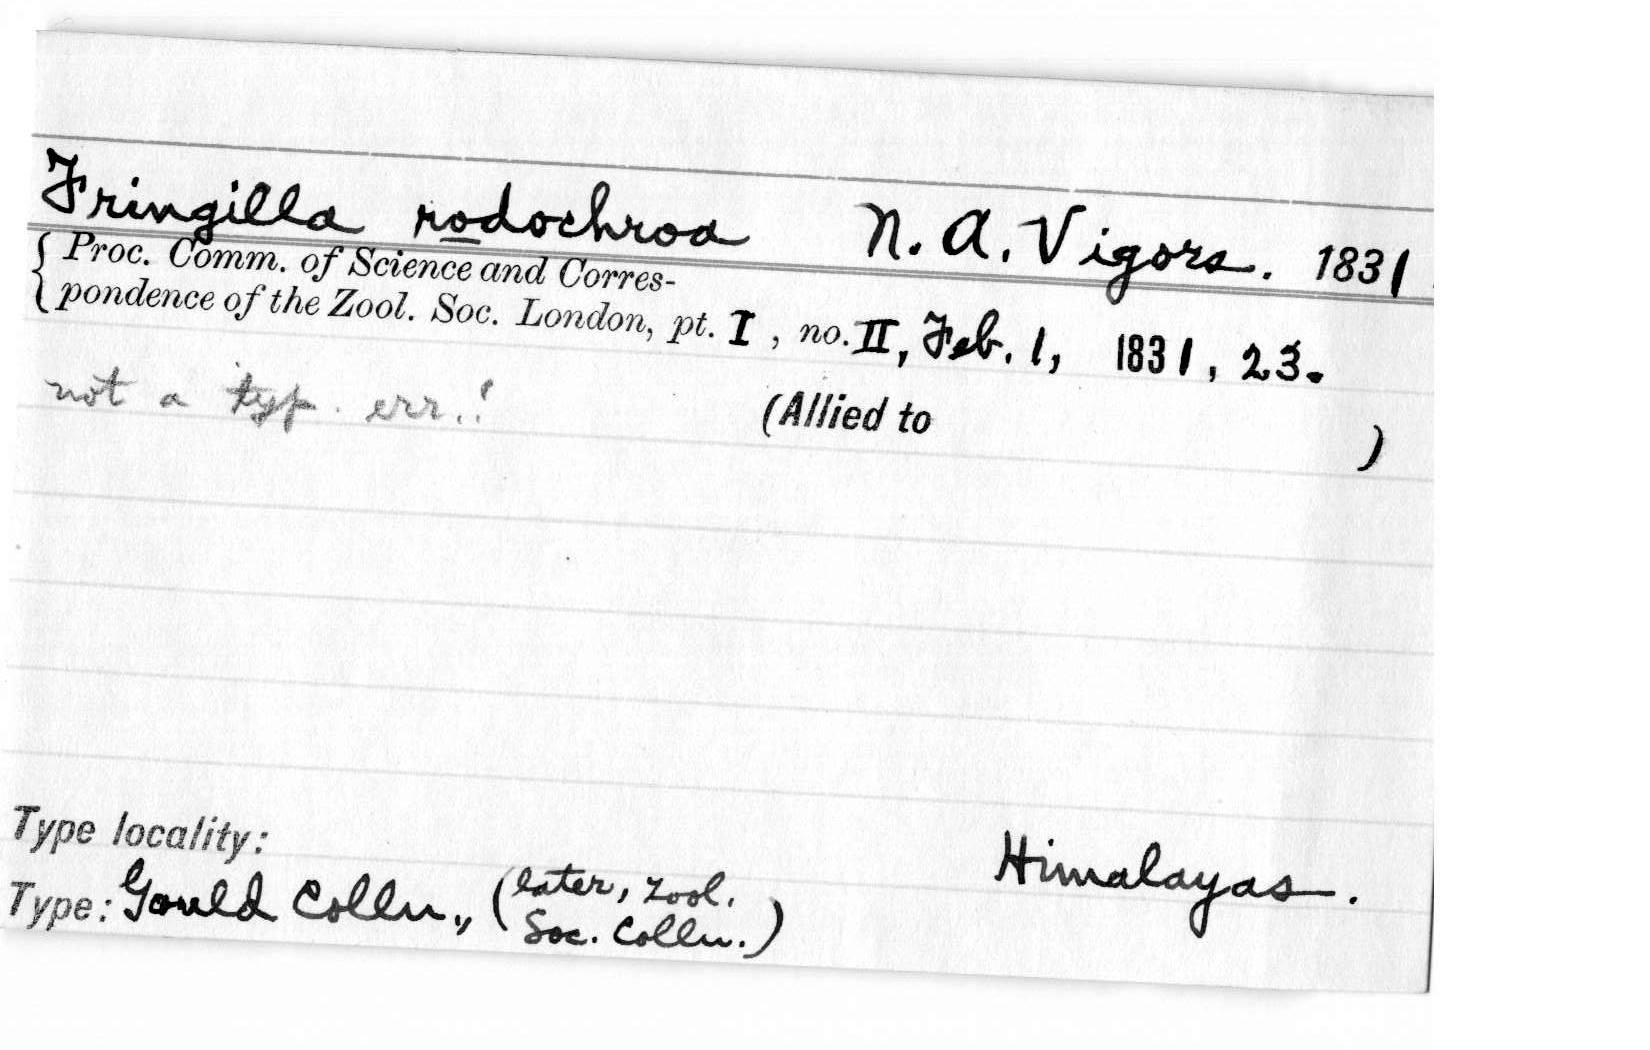 Fringilla rodochroa N. A. Vigors. 1831
Proc. Comm. of Science and Corres-
pondence of the Zool. Soc. London, pt. I, no. II, Feb. 1, 1831, 23.
not a typ. err.!
(Allied to )
Type locality: Himalayas.
Type: Gould Colln., (later, Zool.
Soc. Colln.)